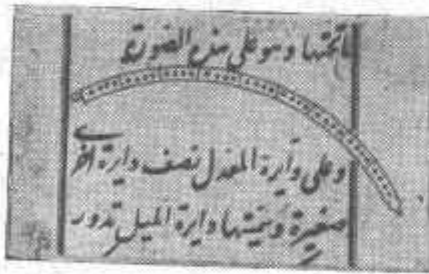 ماتحتها وهو على هذه الصورة
وعلى دايرة المعدل نصف دايرة اخرى
صغيرة وتسمتها دايرة الميل تدور